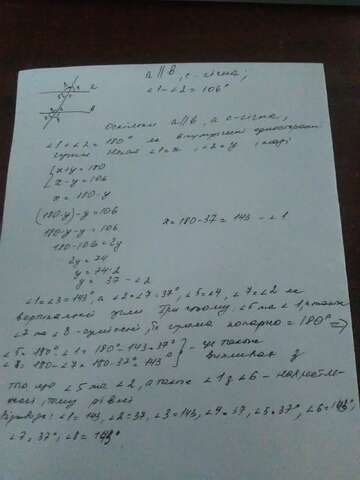 a || b, c - січна;
∠1-∠2=106°
Оскільки a||b, а c-січна,
∠1+∠2=180° як внутрішні односторонні
кути. Нехай ∠1=x, ∠2=y, тоді
{x+y=180
{x-y=106
x=180-y
(180-y)-y=106
x=180-37=143 - ∠1
180-y-y=106
180-106=2y
2y=74
y=74:2
y=37 - ∠2
∠1=∠3=143°, а ∠2=∠4=37°, ∠5=∠7, ∠ як
вертикальні кути. При цьому: ∠5 та ∠1, а також
∠7 та ∠8 - суміжні, їх сума попарно =180° ⇒
∠5=180°-∠1=180°-143=37°
∠8=180°-∠7=180-37=143°
} - це також
випливає з
того що ∠5 та ∠2, а також ∠1 з ∠6 - навхрестле-
жачі, тому рівні
Відповідь: ∠1=143, ∠2=37, ∠3=143°, ∠4=37, ∠5=37°, ∠6=143°,
∠7=37°, ∠8=143°